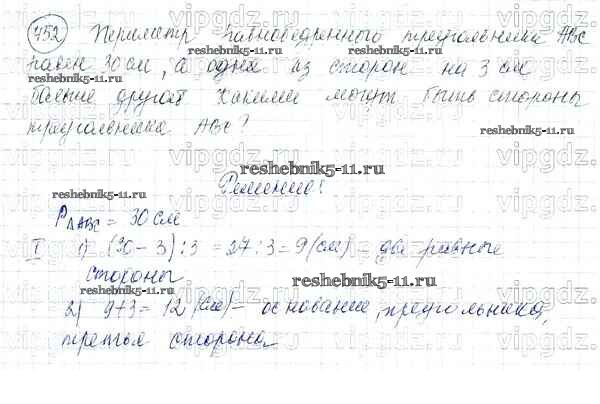 752 Периметр равнобедренного треугольника ABC
равен 30 см, а одна из сторон на 3 см
больше другой какими могут быть стороны
треугольника ABC?
Решение:
P△ABC = 30 см
I 1) (30 - 3) : 3 = 27 : 3 = 9 (см) - две равные
стороны
2) 9+3 = 12 (см) - основание, треугольника,
третья сторона
reshebnik5-11.ru
vipgdz.